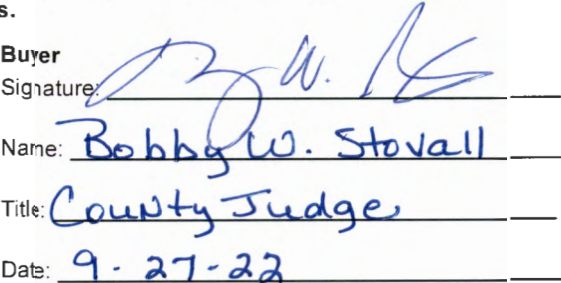 s.
Buyer
Signature:
Name: Bobby W. Stovall
Title: County Judge
Date: 9-27-22